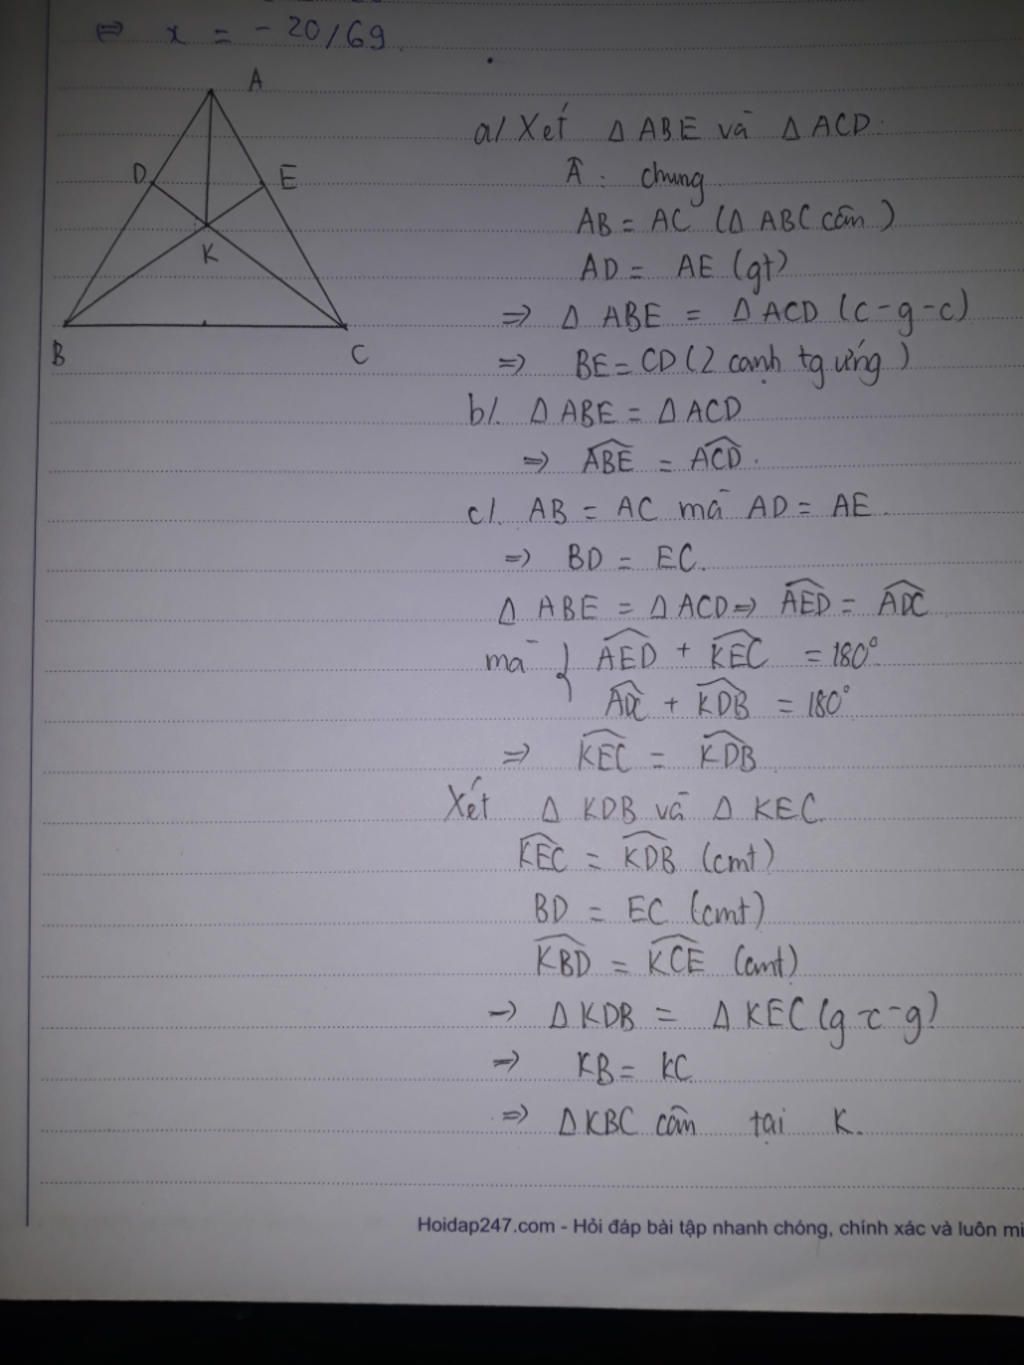 ⇔ x = - 20/69.
A
D
E
K
B
C
a/ Xét Δ ABE và Δ ACD.
Â : chung
AB = AC (Δ ABC cân)
AD = AE (gt)
⇒ Δ ABE = Δ ACD (c-g-c)
⇒ BE = CD (2 cạnh tg ứng)
b/. Δ ABE = Δ ACD
⇒ \widehat{ABE} = \widehat{ACD}.
c/. AB = AC mà AD = AE.
⇒ BD = EC.
Δ ABE = Δ ACD ⇒ \widehat{AED} = \widehat{ADC}
mà } \widehat{AED} + \widehat{KEC} = 180°
\widehat{ADC} + \widehat{KDB} = 180°
⇒ \widehat{KEC} = \widehat{KDB}
Xét Δ KDB và Δ KEC.
\widehat{KEC} = \widehat{KDB} (cmt)
BD = EC (cmt)
\widehat{KBD} = \widehat{KCE} (cmt)
⇒ Δ KDB = Δ KEC (g-c-g)
⇒ KB = KC
⇒ Δ KBC cân tại K.
Hoidap247.com - Hỏi đáp bài tập nhanh chóng, chính xác và luôn mi